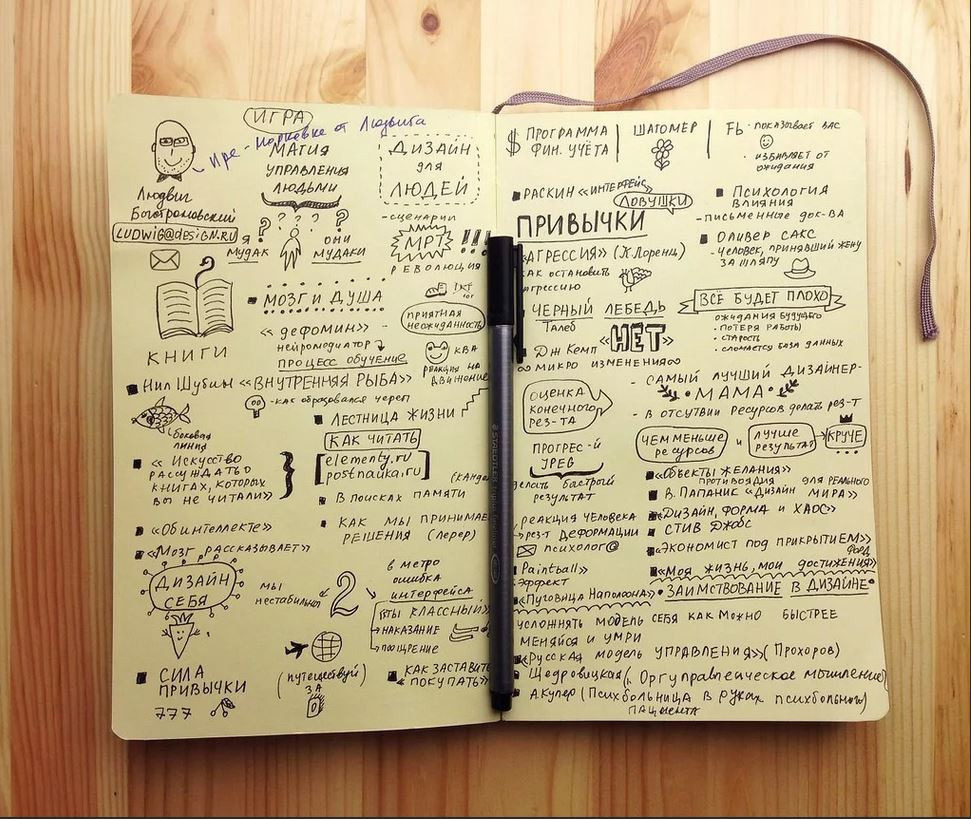 ИГРА
Людвига
МАГИЯ
УПРАВЛЕНИЯ
ЛЮДЬМИ
ДИЗАЙН
для
ЛЮДЕЙ
Людвиг
LUDWIG@DESIGN.RU
Я ?
МУДАК
? ? ? ?
ОНИ
МУДАКИ
-СЦЕНАРИИ
МРТ !!!
РЕВОЛЮЦИЯ
КНИГИ
МОЗГ И ДУША
«дефомин» -
нейромодиатор
ПРОЦЕСС ОБУЧЕНИЕ
ПРИЯТНАЯ
НЕОЖИДАННОСТЬ
КВА
РЕАКЦИЯ НА
ДВИЖЕНИЕ
НИЛ ШУБИН «ВНУТРЕННЯЯ РЫБА»
-как образовался череп
боковая
линия
ЛЕСТНИЦА ЖИЗНИ
КАК ЧИТАТЬ
elementy.ru
postnauka.ru
« Искусство
РАССУЖДАТЬ О
КНИГАХ, КОТОРЫХ
ВЫ НЕ ЧИТАЛИ»
В ПОИСКАХ ПАМЯТИ
(кандел
«Об интеллекте»
КАК МЫ ПРИНИМАЕ
РЕШЕНИЯ (Лерер)
«Мозг РАССКАЗЫВАЕТ»
ДИЗАЙН
СЕБЯ
мы
нестабильны
2
в метро
ошибка
интерфейса
ТЫ КЛАССНЫЙ
НАКАЗАНИЕ
ПООЩРЕНИЕ
СИЛА
ПРИВЫЧКИ
777
(путешествуй)
ЗА
КАК ЗАСТАВИТЬ
«ПОКУПАТЬ»
$ ПРОГРАММА
ФИН. УЧЁТА
ШАГОМЕР
Fb · показывает вас
· избавляет от
ожидания
РАСКИН «ИНТЕРФЕЙС»
ЛОВУШКИ
ПРИВЫЧКИ
«АГРЕССИЯ» (К.Лоренц)
КАК ОСТАНОВИТЬ
агрессию
ЧЕРНЫЙ ЛЕБЕДЬ
Талеб
«НЕТ»
Дж Кемп
∞ МИКРО ИЗМЕНЕНИЯ∞
ОЦЕНКА
КОНЕЧНОГО
РЕЗ-ТА
ПРОГРЕС-Й
делать быстрый
результат
РЕАКЦИЯ ЧЕЛОВЕКА
рез-т ДЕФОРМАЦИИ
ПСИХОЛОГ@
Paintball»
Эффект
«Пуговица Наполеона»
ПСИХОЛОГИЯ
ВЛИЯНИЯ
-ПИСЬМЕННЫЕ ДОК-ВА
ОЛИВЕР САКС
-Человек, принявший жену
за шляпу
ВСЁ БУДЕТ ПЛОХО
ОЖИДАНИЯ БУДУЩЕГО
· ПОТЕРЯ РАБОТЫ
· СТАРОСТЬ
· СЛОМАЕТСЯ БАЗА ДАННЫХ
- САМЫЙ ЛУЧШИЙ ДИЗАЙНЕР-
МАМА
- В ОТСУТВИИ РЕСУРСОВ делать рез-т
ЧЕМ МЕНЬШЕ
РЕСУРСОВ
и
ЛУЧШЕ
РЕЗУЛЬТАТ
КРУЧЕ
«Объекты ЖЕЛАНИЯ»
ДЛЯ РЕАЛЬНОГО
В. ПАПАНИК «Дизайн МИРА»
«Дизайн, ФОРМА И ХАОС»
СТИВ ДЖОБС
«ЭКОНОМИСТ ПОД ПРИКРЫТИЕМ»
Форд
«МОЯ ЖИЗНЬ, МОИ ДОСТИЖЕНИЯ»
ЗАИМСТВОВАНИЕ В ДИЗАЙНЕ
УСЛОЖНЯТЬ МОДЕЛЬ СЕБЯ как МОЖНО БЫСТРЕЕ
МЕНЯЙСЯ И УМРИ
«РУССКАЯ МОДЕЛЬ УПРАВЛЕНИЯ» (Прохоров)
А.Купер (Психбольница в руках психбольного)
ПАЦИЕНТА